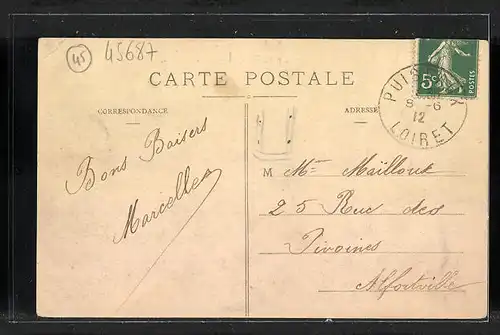 45 45687
CARTE POSTALE
CORRESPONDANCE
ADRESSE
5c POSTES
8 -6
12
LOIRET
Bons Baisers
Marcelle
M Mme Mailloux
25 Rue des
Pivoines
Alfortville